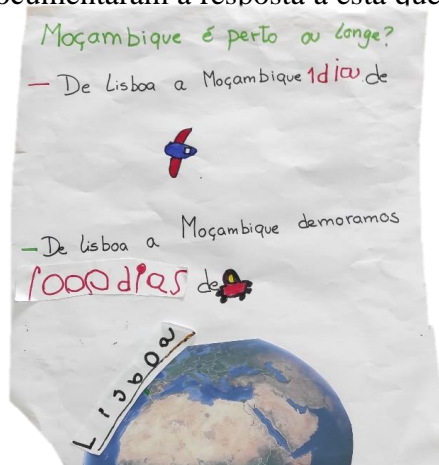 ocumentaram a resposta a esta que
Moçambique é perto ou longe?
— De Lisboa a Moçambique 1dia de
— De Lisboa a Moçambique demoramos
1000 dias de
Lisboa